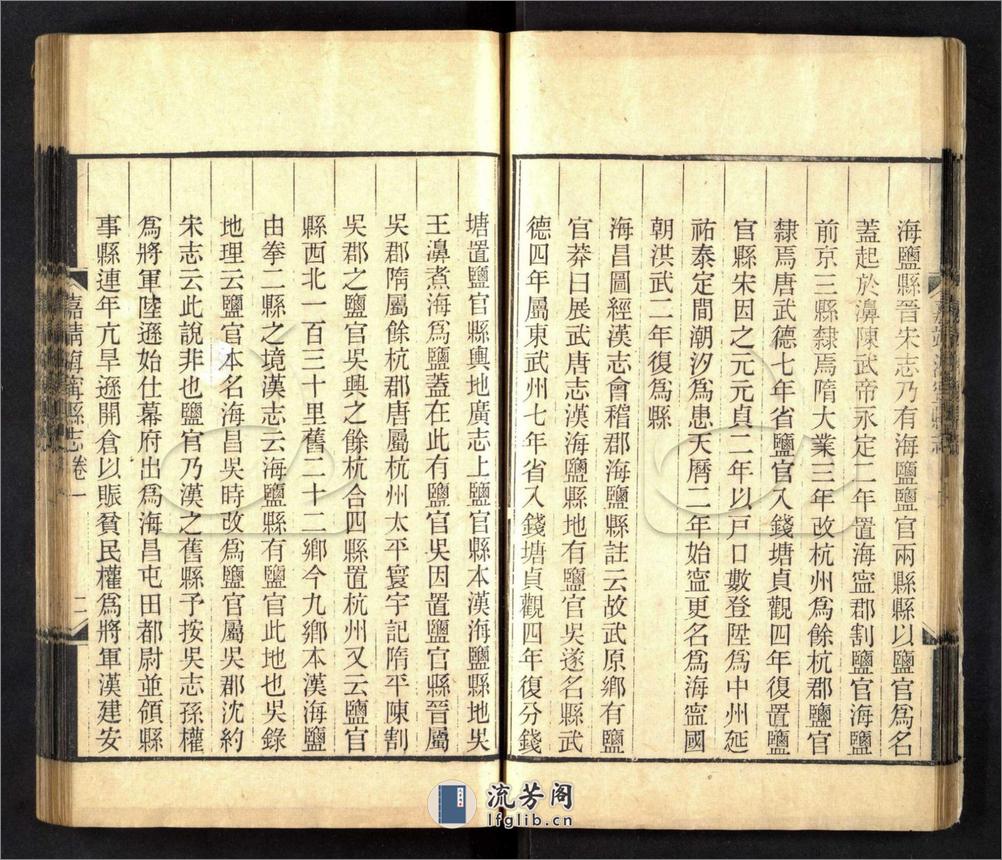 海鹽縣晉宋志乃有海鹽鹽官兩縣縣以鹽官爲名
蓋起於濞陳武帝永定二年置海寍郡割鹽官海鹽
前京三縣隸焉隋大業三年改杭州爲餘杭郡鹽官
隸焉唐武德七年省鹽官入錢塘貞觀四年復置鹽
官縣宋因之元元貞二年以戸口數登陞爲中州延
祐泰定間潮汐爲患天曆二年始寍更名爲海寍國
朝洪武二年復爲縣
海昌圖經漢志會稽郡海鹽縣註云故武原鄉有鹽
官莽曰展武唐志漢海鹽縣地有鹽官吳遂名縣武
德四年屬東武州七年省入錢塘貞觀四年復分錢
塘置鹽官縣輿地廣志上鹽官縣本漢海鹽縣地吳
王濞煮海爲鹽蓋在此有鹽官吳因置鹽官縣晉屬
吳郡隋屬餘杭郡唐屬杭州太平寰宇記隋平陳割
吳郡之鹽官吳興之餘杭合四縣置杭州又云鹽官
縣西北一百三十里舊二十二鄉今九鄉本漢海鹽
由拳二縣之境漢志云海鹽縣有鹽官此地也吳錄
地理云鹽官本名海昌吳時改爲鹽官屬吳郡沈約
宋志云此說非也鹽官乃漢之舊縣予按吳志孫權
爲將軍陸遜始仕幕府出爲海昌屯田都尉並領縣
事縣連年亢旱遜開倉以賑貧民權爲將軍漢建安
嘉靖海寍縣志卷一
二
流芳阁
lfglib.cn